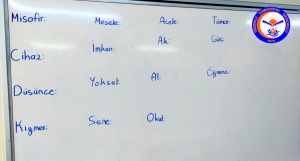 Misafir: Mesele: Acele: Tümce:
İmkan: Ak: Güç:
Cihaz:
Yoksat: Al: Öğrenci:
Düşünce:
Kıymet: Sene: Okul